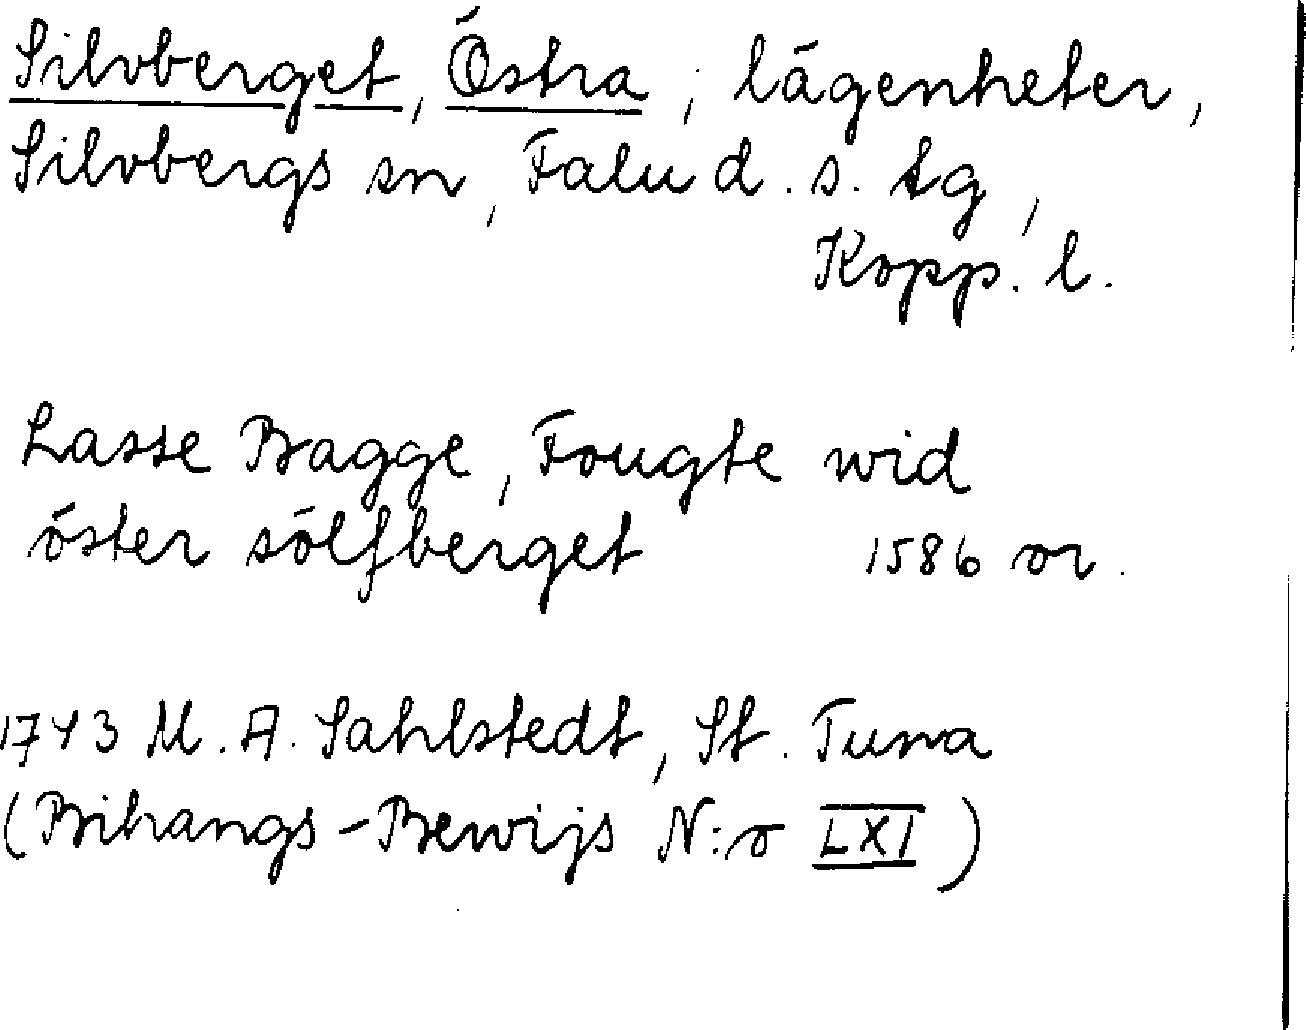 Silvberget, Östra, lägenheter,
Silvbergs sn, Falu d. s. tg,
Kopp. l.
Lasse Bagge, Fougte wid
öster sölfberget 1586 or.
1743 M. A. Sahlstedt, St. Tuna
(Bihangs-Bewijs N:o LXI)